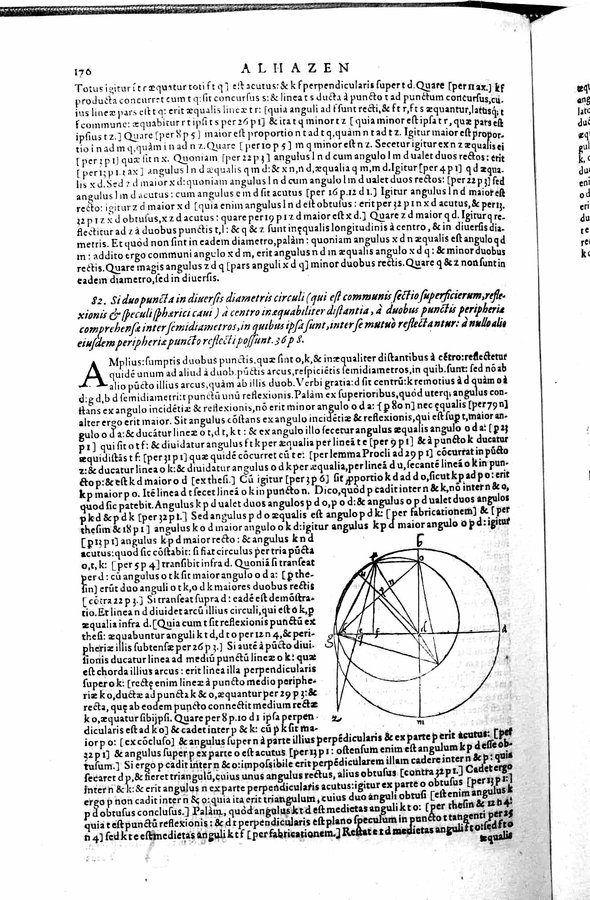 176
ALHAZEN
Totus igitur f t r æquatur toti f t q] est acutus: & k f perpendicularis super t d. Quare [per 11 ax.] k f
producta concurret cum t q: sit concursus s: & linea t s ducta à puncto t ad punctum concursus, cu-
ius linea pars est t q: erit æqualis lineæ t r: [quia anguli ad f sunt recti, & f t r, f t s æquantur, latusq́;
f commune: æquabitur r t ipsi t s per 26 p 1] & ita t q minor t z [quia minor est ipsa t r, quæ pars est
ipsius t z.] Quare [per 8 p 5] maior est proportio n t ad t q, quàm n t ad t z. Igitur maior est propor-
tio i n ad m q, quàm i n ad n z. Quare [per 10 p 5] m q minor est n z. Secetur igitur ex n z æqualis ei
[per 3 p 1] quæ sit n x. Quoniam [per 22 p 3] angulus l n d cum angulo l m d ualet duos rectos: erit
[per 13 p 1. 3 ax] angulus l n d æqualis q m d: & x n, n d, æqualia q m, m d. Igitur [per 4 p 1] q d æqua-
lis x d. Sed z d maior x d: quoniam angulus l n d cum angulo l m d ualet duos rectos: [per 22 p 3] sed
angulus l m d acutus: cum angulus e m d sit acutus [per 16 p. 12 d 1.] Igitur angulus l n d maior est
recto: igitur z d maior x d [quia enim angulus l n d est obtusus: erit per 32 p 1 n x d acutus, & per 13.
32 p 1 z x d obtusus, x z d acutus: quare per 19 p 1 z d maior est x d.] Quare z d maior q d. Igitur q re-
flectitur ad z à duobus punctis t, l: & q & z sunt inæqualis longitudinis à centro, & in diuersis dia-
metris. Et quòd non sint in eadem diametro, palàm: quoniam angulus x d n æqualis est angulo q d
m: addito ergo communi angulo x d m, erit angulus n d m æqualis angulo x d q: & minor duobus
rectis. Quare magis angulus z d q [pars anguli x d q] minor duobus rectis. Quare q & z non sunt in
eadem diametro, sed in diuersis.
82. Si duo puncta in diuersis diametris circuli (qui est communis sectio superficierum, refle-
xionis & speculi sphærici caui) à centro inæquabiliter distantia, à duobus punctis peripheriæ
comprehensæ inter semidiametros, in quibus ipsa sunt, inter se mutuò reflectantur: à nullo alio
eiusdem peripheriæ puncto reflecti possunt. 36 p 8.
AMplius: sumptis duobus punctis, quæ sint o, k, & inæqualiter distantibus à cẽtro: reflectetur
quidẽ unum ad aliud à duob. pũctis arcus, respiciẽtis semidiametros, in quib. sunt: sed nõ ab
alio pũcto illius arcus, quàm ab illis duob. Verbi gratia: d sit centrũ: k remotius à d quàm o à
d: g d, b d semidiametri: t punctũ unũ reflexionis. Palàm ex superioribus, quòd uterq; angulus con-
stans ex angulo incidẽtiæ & reflexionis, nõ erit minor angulo o d a: [per 80 n] nec ęqualis [per 79 n]
alter ergo erit maior. Sit angulus cõstans ex angulo incidẽtiæ & reflexionis, qui est sup t, maior an-
gulo o d a: & ducãtur lineæ o t, d t, k t: & ex angulo illo secetur angulus æqualis angulo o d a: [p 23
p 1] qui sit o t f: & diuidatur angulus f t k per æqualia per lineã t e [per 9 p 1] & à puncto k ducatur
æquidistãs t f: [per 31 p 1] quæ quidẽ cõcurret cũ t e: [per lemma Procli ad 29 p 1] cõcurrat in pũcto
z: & ducatur linea o k: & diuidatur angulus o d k per æqualia, per lineã d u, secantẽ lineã o k in pun-
cto p: & est k d maior o d [ex thesi.] Cũ igitur [per 3 p 6] sit ꝓportio k d ad d o, sicut k p ad p o: erit
k p maior p o. Itẽ linea d t secet lineã o k in puncto n. Dico, quòd p cadit inter n & k, nõ inter n & o,
quod sic patebit. Angulus k p d ualet duos angulos p d o, p o d: & angulus o p d ualet duos angulos
p k d & p d k [per 32 p 1.] Sed angulus p d o æqualis est angulo p d k: [per fabricationem] & [per
thesim & 18 p 1] angulus k o d maior angulo o k d: igitur angulus k p d maior angulo o p d: igitur
[p 13 p 1] angulus k p d maior recto: & angulus k n d
acutus: quod sic cõstabit: si fiat circulus per tria pũcta
o, t, k: [per 5 p 4] transibit infra d. Quoniã si transeat
per d: cũ angulus o t k sit maior angulo o d a: [ꝑ the-
sin] erũt duo anguli o t k, o d k maiores duobus rectis
[cõtra 22 p 3.] Si transeat supra d: eadẽ est demõstra-
tio. Et linea n d diuidet arcũ illius circuli, qui est o k, p
æqualia infra d. [Quia cum t sit reflexionis punctũ ex
thesi: æquabuntur anguli k t d, d t o per 12 n 4, & peri-
pheriæ illis subtensæ per 26 p 3.] Si autẽ à pũcto diui-
sionis ducatur linea ad mediũ punctũ lineæ o k: quæ
est chorda illius arcus: erit linea illa perpendicularis
super o k: [rectę enim lineæ à puncto medio periphe-
riæ k o, ductæ ad puncta k & o, æquantur per 29 p 3: &
recta, quę ab eodem puncto connectit medium rectæ
k o, æquatur sibi ipsi. Quare per 8 p. 10 d 1 ipsa perpen-
dicularis est ad k o] & cadet inter p & k: cũ p k sit ma-
ior p o: [ex cõcluso] & angulus super n à parte illius perpẽdicularis & ex parte p erit acutus: [per
32 p 1] & angulus super p ex parte o est acutus [per 13 p 1: ostensum enim est angulum k p d esse ob-
tusum.] Si ergo p cadit inter n & o: impossibile erit perpendicularem illam cadere inter n & p: quia
secaret d p, & fieret triangulũ, cuius unus angulus rectus, alius obtusus [contra 32 p 1.] Cadet ergo
inter n & k: & erit angulus n ex parte perpendicularis acutus: igitur ex parte o obtusus [per 13 p 1:]
ergo p non cadit inter n & o: quia ita erit triangulum, cuius duo anguli obtusi [est enim angulus k
p d obtusus conclusus.] Palàm, quòd angulus k t d est medietas anguli k t o: [per thesin & 12 n 4:
quia t est punctũ reflexionis: & d t perpendicularis est plano speculum in puncto t tangenti per 25
n 4] sed k t e est medietas anguli k t f [per fabricationem.] Restat e t d medietas anguli f t o: sed f t o
æqualis